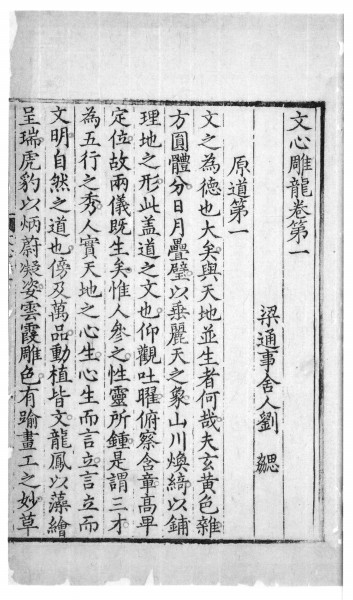 文心雕龍卷第一
梁通事舍人劉 勰
原道第一
文之為德也大矣與天地並生者何哉夫玄黃色雜
方圓體分日月疊璧以垂麗天之象山川煥綺以鋪
理地之形此盖道之文也仰觀吐曜俯察含章高卑
定位故兩儀既生矣惟人參之性靈所鍾是謂三才
為五行之秀人實天地之心生心生而言立言立而
文明自然之道也傍及萬品動植皆文龍鳳以藻繪
呈瑞虎豹以炳蔚凝姿雲霞雕色有踰畫工之妙草